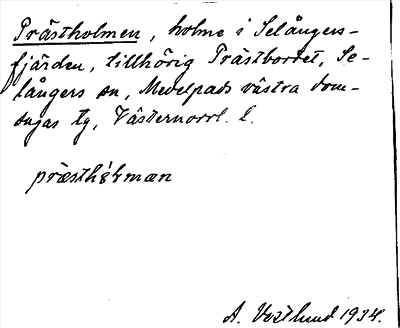 Prästholmen, holme i Selångers-
fjärden, tillhörig Prästbordet, Se-
långers sn, Medelpads västra dom-
sagas tg, Västernorrl. l.
A. Vestlund 1934.